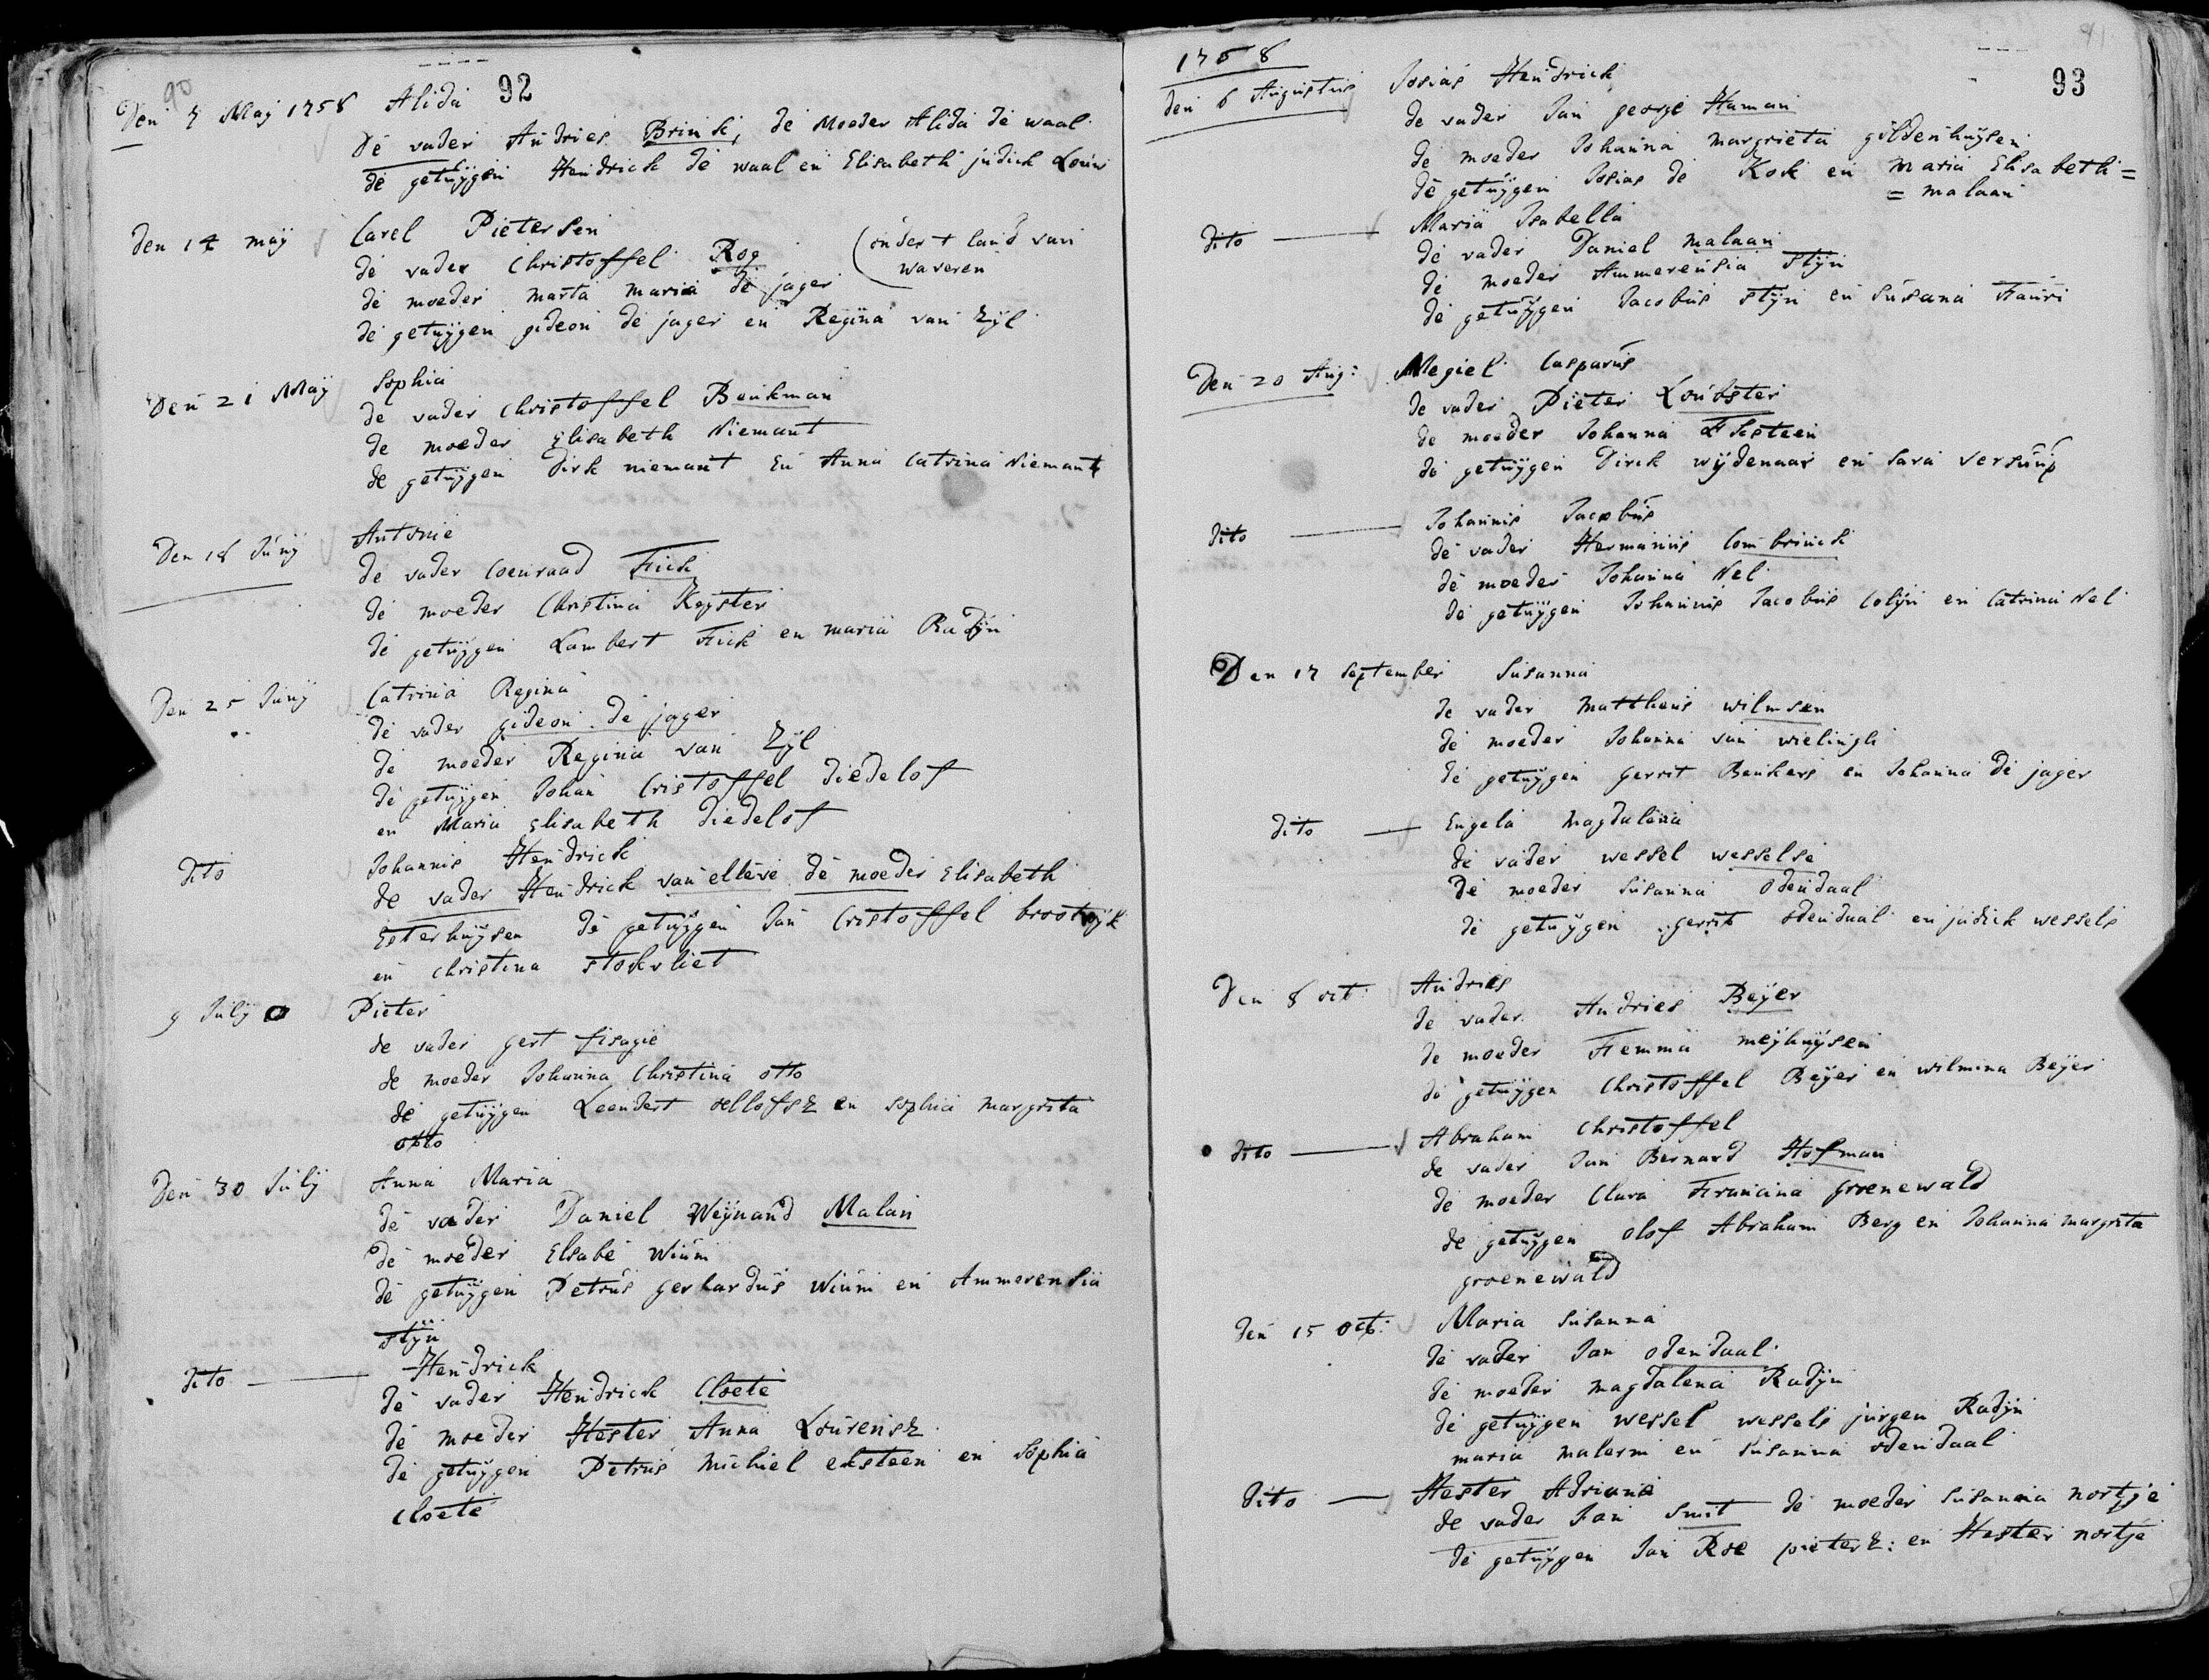 90
92
Den 7 Maij 1758 Alida
De vader Andries Brink, de Moeder Alida de waal
de getuijgen Hendrick de waal en Elisabeth judick Louw
den 14 maij Carel Pietersen
de vader Christoffel Rog (onder t land van
de moeder marta maria de jager waveren
de getuijgen gideon de jager en Regina van zijl
Den 21 Maij Sophia
de vader Christoffel Beukman
de moeder Elisabeth Niemant
de getuijgen Dirk niemant En Anna Catrina Niemant
Den 18 Junij Antonie
de vader Coenraad Fick
de moeder Christina Keyster
de getuijgen Lambert Fick en maria Radijn
Den 25 Junij Catrina Regina
de vader gideon de jager
de moeder Regina van Zijl
de getuijgen Johan Cristoffel Diedelof
en Maria Elisabeth Diedelof
dito Johannis Hendrick
de vader Hendrick van elleve de moeder Elisabeth
Esterhuijsen de getuijgen Jan Cristoffel brootrijk
en Christina stokvliet
9 Julij Pieter
de vader gert fisagie
de moeder Johanna Christina otto
de getuijgen Leendert oellofsz en sophia margrita
otto
Den 30 Julij Anna Maria
de vader Daniel Weijnand Malan
de moeder Elsabe Wium
de getuijgen Petrus gerhardus Wium en Ammerensia
stijn
dito Hendrick
de vader Hendrick Cloete
de moeder Hester Anna Lourensz
de getuijgen Petrus Michiel eksteen en Sophia
Cloete
91
93
1758
den 6 Augustus Josias Hendrick
de vader Jan george Haman
de moeder Johanna margrieta gildenhuijsen
de getuijgen Josias de Kok en maria Elisabeth =
= malaan
dito Maria Isabella
de vader Daniel malaan
de moeder Ammerensia stijn
de getuijgen Jacobus stijn en susana Fauri
Den 20 Aug: Megiel Casparus
de vader Pieter Loubster
de moeder Johanna Eksteen
de getuijgen Dirck wijdenaar en sara versuup
dito Johannis Jacobus
de vader Hermanus Combrinck
de moeder Johanna Nel
de getuijgen Johannis Jacobus Colijn en Catrina Nel
Den 17 September Susanna
de vader Mattheus wilmsen
de moeder Johanna van wielingh
de getuijgen gerrit Beukers en Johanna de jager
dito Engela Magdalena
de vader wessel wesselse
de moeder Susanna Odendaal
de getuijgen gerrit odendaal en judick wessels
Den 8 oct: Andries
de vader Andries Beijer
de moeder Femma meijhuijsen
de getuijgen Christoffel Beijer en wilmina Beijer
dito Abraham Christoffel
de vader Jan Bernard Hofman
de moeder Clara Francina groenewald
de getuijgen olof Abraham Berg en Johanna margrita
groenewald
den 15 oct: Maria Susanna
de vader Jan odendaal
de moeder magdalena Radijn
de getuijgen wessel wessels jurgen Radijn
maria malerm en susanna odendaal
dito Hester Adriana
de vader Jan Smit de moeder Susanna nortje
de getuijgen Jan Roe pietersz: en Hester nortje